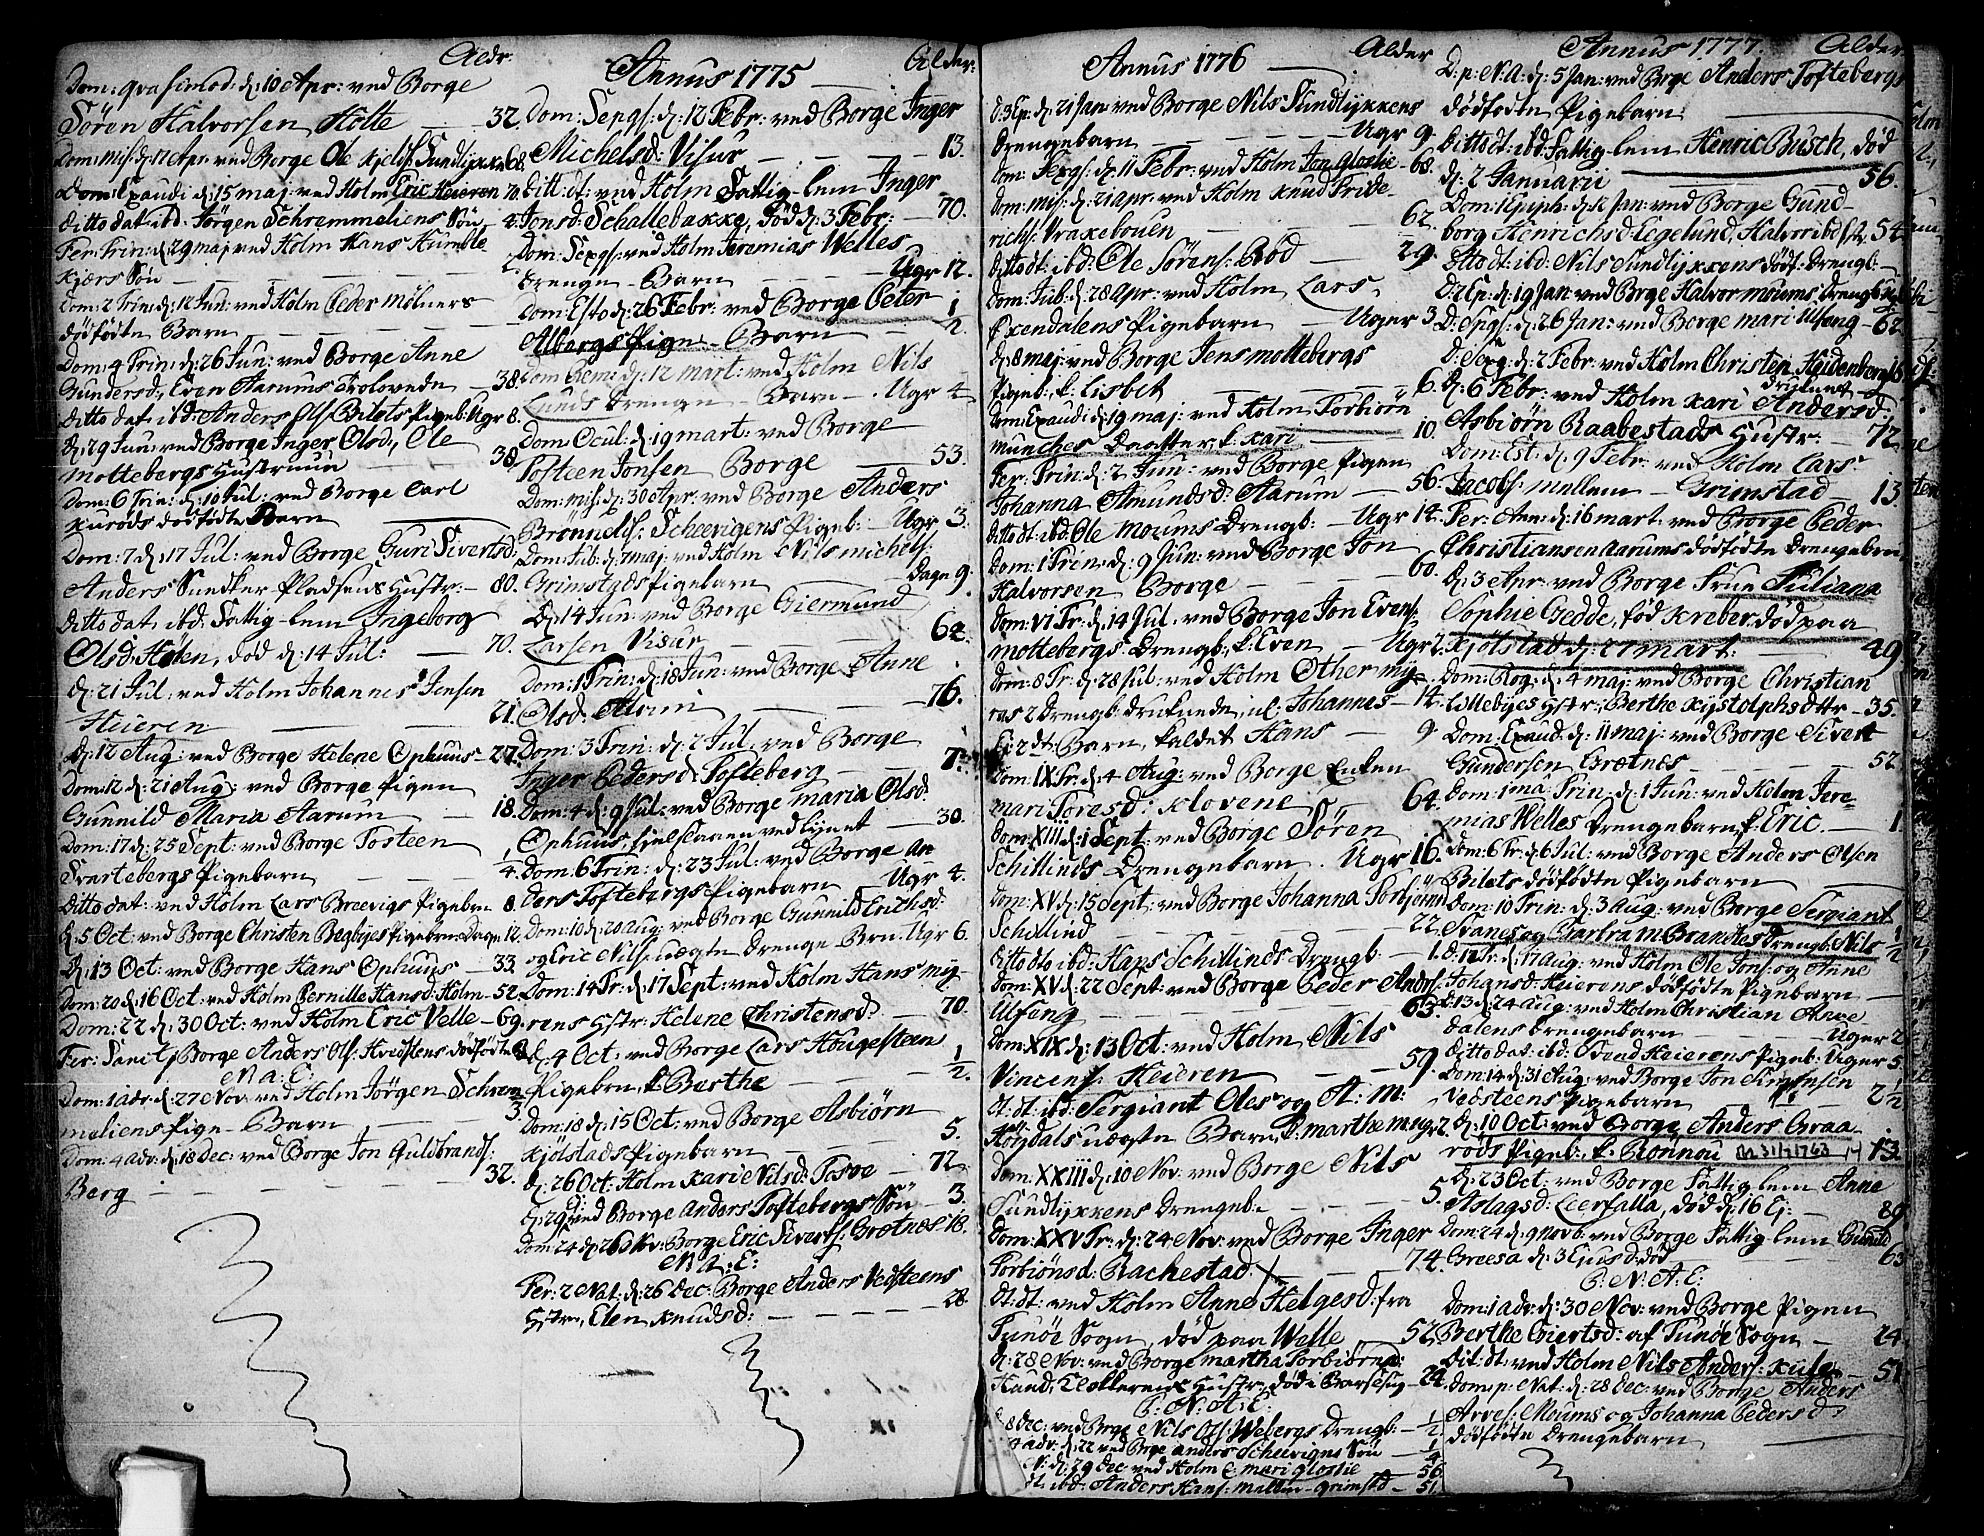 Aldr.
Dom: qvasimod: d: 10 Apr: ved Borge
Sören Halvorsen Holte — 32.
Dom: mis: d: 17 Apr: ved Borge Ole Kjelds: Sundløkke 68.
Dom: Exaudi d: 15 maj: ved Holm Eric Heieren 70.
ditto dat: ibd: Jörgen Schrammeliens Sön 4.
Fer: Trin: d: 29 maj ved Holm Hans Humble
Kjærs Sön
Dom: 2 Trin: d: 12 Jun: ved Holm Peder mölners
dödfödte Barn
Dom: 4 Trin: d: 26 Jun: ved Borge Anne
Gundersd: Even Aarums — 38.
Ditto dat: ibd: Anders Ols: Bilets Pigeb: Ugr 8.
d: 29 Jun: ved Borge Inger Olsd: Ole
mottebergs Hustrue — 38.
Dom: 6 Trin: d: 10 Jul: ved Borge Carl
Kuröds dödfödte Barn
Dom: 7 d: 17 Jul: ved Borge Guri Sivertsd:
Anders Sundker Pladsens Hustr: — 80.
ditto dat: ibd: Fattig-lem Ingeborg
Olsd: Holen, död d: 14 Jul: — 70.
d: 21 Jul: ved Holm Johannes Jensen
Heieren — 21.
d: 12 Aug: ved Borge Helene Ophuus — 27.
Dom: 12 d: 21 Aug: ved Borge Pigen
Gunnild Maria Aarum — 18.
Dom: 17 d: 25 Sept: ved Borge Tosteen
Svartebergs Pigebarn 1/4.
Ditto dat: ved Holm Lars Brevigs Pigebrn 8.
d: 5 Oct: ved Borge Christen Begbyes Pigebrn Dage 12.
d: 13 Oct: ved Borge Hans Ophuus — 33.
Dom: 20 d: 16 Oct: ved Holm Pernille Hansd: Holm — 52.
Dom: 22 d: 30 Oct: ved Holm Eric Velle — 69.
Fer: Sanct: Borge Anders Ols: dödfödte B.
N. A: E:
Dom: 1 adv: d: 27 Nov: ved Holm Jörgen Schram
meliens Pige-Barn — 3.
Dom: 4 adv: d: 18 Dec: ved Borge Jon Guldbrands:
Berg — 32.
Annus 1775 Alder.
Dom: Sexgs: d: 12 Febr: ved Borge Inger
Michelsd: Visur — 13.
ditt: dt: ved Holm Fattig-lem Inger
Jonsd: Schallebakke, död d: 3 Febr: — 70.
Dom: Sexgs: ved Holm Jeremias Welles
Drenge-Barn — Ugr 12.
Dom: Esto d: 26 Febr: ved Borge Peter
Albergs Pige-Barn — 1/2
Dom Rem: d: 12 mart: ved Holm Nils
Lunds Drenge-Barn — Ugr 4
Dom: Ocul: d: 19 mart: ved Borge
Tosteen Jonsen Borge — 53.
Dom: mis: d: 30 Apr: ved Borge Anders
Brönnelds: Scheevigens Pigeb: — Ugr 3.
Dom: Jub: d: 7 maj: ved Holm Nils michels:
Grimstads Pigebarn — Dage 9.
d: 14 Jun: ved Borge Giermund
Larsen Visur — 62.
Dom: 1 Trin: d: 18 Jun: ved Borge Anne
Olsd: Alvim — 76.
Dom: 3 Trin: d: 2 Jul: ved Borge
Inger Pedersd: Tofteberg — 7
Dom: 4 d: 9 Jul: ved Borge maria Olsd:
Ophuus, hjelslaaen ved Lynet — 30.
Dom: 6 Trin: d: 23 Jul: ved Borge An
ders Toftebergs Pigebarn Ugr 4.
Dom: 10 d: 20 Aug: ved Borge Gunnild Erichsd:
og Eric Nils: uægte Drenge Brn: Ugr 6.
Dom: 14 Tr: d: 17 Sept: ved Holm Hans myg
rens Hstr: Helene Christensd: — 70.
d: 4 Oct: ved Borge Lars Hougesteen
Pigebrn, k. Berthe — 1/2.
Dom: 18 d: 15 Oct: ved Borge Asbiörn
Kjölstads Pigebarn — 5.
d: 26 Oct: Holm Karie Nilsd: Torve — 72
d: 29 ved Borge Anders Toftebergs Sön — 3.
Dom: 24 d: 26 Nov: Borge Eric Siverts: Grotnes 18.
N. A: E:
Fer: 2 Nat: d: 26 Dec: Borge Anders Vedsteens
Hstr, Elen Knudsd: — 28
Annus 1776 Alder
d: 3 Ep: d: 21 Jan: ved Borge Nils Sundlykkens
Drengebarn — Ugr 9.
Dom: Sexgs: d: 11 Febr: ved Holm Jon Glostie — 68.
Dom: mis: d: 21 apr: ved Holm Knud Fride
richs: Vraxebouen — 62.
ditto dt: ibd: Ole Sörens: Röd — 29.
Dom: Jub: d: 28 Apr: ved Holm Lars
Oxendalens Pigebarn — Uger 3.
d: 8 maj: ved Borge Jens mottebergs
Pigeb: k. Lisbet — 6.
Dom: Exaudi d: 19 maj: ved Holm Torbiörn
munches Daatter, k. Kari — 10.
Fer: Trin: d: 2 Jun: ved Borge Pigen
Johanna Amundsd: Aarum — 56.
ditto dt: ibd: Ole Moums Drengb: — Ugr 14.
Dom: 1 Trin: d: 9 Jun: ved Borge Jon
Halvorsen Borge — 60.
Dom: VI Tr: d: 14 Jul. ved Borge Jon Evens:
mottebergs Drengb:, k. Even — Ugr 2.
Dom: 8 Tr: d: 28 Jul: ved Holm Other myg
ras 2 Drengb: druknede, nl: Johannes — 14.
Et 2 dt: Barn, kaldet Hans — 9
Dom: IX Tr: d: 4 Aug: ved Borge Enken
mari Toresd: Klovene — 64.
Dom: XIII d: 1 Sept: ved Borge Sören
Schillinds Drengebarn. Ugr 16.
Dom: XV d: 15 Sept: ved Borge Johanna Torbjörn
Schillind — 22.
ditto dto ibd: Hans Schillinds Drengb: — 1.
Dom: XV d: 22 Sept: ved Borge Peder Anders:
Ulfeng — 63.
Dom: XIX d: 13 Oct: ved Holm Nils
Vincens: Heieren — 59.
dt: dt: ibd: Sergiant Oles og A: M:
Kongdals uægte Barn, k: marthe m: ugr 2.
Dom: XXIII d: 10 Nov: ved Borge Nils
Sundlykkens Drengeb: — 5.
Dom: XXV Tr: d: 24 Nov: ved Borge Inger
Torbiönsd: Rachestad — 74.
dt: dt: ved Holm Anne Helgesd: fra
Tunöe Sogn, död paa Welle — 52.
d: 28 Nov: ved Borge martha Torbiörnsd:
Haud, Klokkerens Hustr, död i Barselsg — 24.
P. N. A: E:
d: 8 Dec: ved Borge Nils Ols: Webergs Drengb: — 1/2
adv: d: 22 ved Borge Anders Scheevigens Sön — 1/4
N: d: 29 Dec: ved Holm E: mari glostie — 56
dt: ibd: Anders Hans: mellem-grimstd — 51.
Annus 1777. Alder
D. p: N.A: d: 5 Jan: ved Brge Anders Toftebergs
dödfödte Pigebarn
Ditto dt: ibd: Fattig-lem Henric Busch, död
d: 2 Januarii — 56.
Dom: 1 Epiph: d: 12 Jan: ved Borge Gund-
borg Henrichsd: Egelund, Halvor ibd: 54
ditto dt: ibd: Nils Sundlykkens dödf: Drengb:
D: 2 Ep: d: 19 Jan ved Brge Halvor moums Drengb:
D: Sexgs: d: 26 Jan: ved Borge mari Ulfeng — 62
D: Sexg: d: 2 Febr: ved Holm Christen Heidenberg
druknet
d: 6 Febr: ved Holm Kari Andersd:
Asbiörn Raabestads Hustr: — 72.
Dom: Est: d: 9 Febr: ved Holm Lars
Jacobs: mellem-Grimstad — 13
Fer: Ann: d: 16 mart: ved Borge Peder
Christiansen Aarums dödfödte Drengebrn
d: 3 Apr: ved Borge Frue Juliana
Sophie Gedde, föd Kreber, död paa
Kjölstad d: 27 mart: — 49
Dom: Rog: d: 4 maj: ved Borge Christian
Lillebyes Hstr:, Berthe Kystolphs Dttr — 35.
Dom: Exaud: d: 11 maj: ved Borge Sivert
Gundersen Grotnes — 52
Dom: 1ma Trin: d: 1 Jun: ved Holm Jere-
mias Welles Drengebarn, k. Eric. — 1.
Dom: 6 Tr: d: 6 Jul: ved Borge Anders Olsen
Bilets dödfödte Pigebarn
Dom: 10 Trin: d: 3 Aug: ved Borge Sergiant
Svanes og Chartra m Brandtes Drengb: Nils — 1/2
D: 12 Tr: d: 17 Aug: ved Holm Ole Jons: og Anne
Johansd: Heierens dödfödte Pigebarn
D: 13 d: 24 Aug: ved Holm Christian Arve
dalens Drengebarn — Uger 2
ditto dat: ibd: Heierens Pigeb: Uger 5
Dom: 14 d: 31 Aug: ved Borge Jon
Vedsteens Pigebarn — 2 1/2
d: 10 Oct: ved Borge, Anders Graa
röds Pigeb:, k. Rönnou Da 31/7 1763 14 13.
d: 23 Oct: ved Borge Fattig lem Anne
Aslagsd: Leerfalla, död d: 16 Ej: — 89
Dom: 24 d: 9 Nov: ved Borge Fattig-lem Gunild
Greesa d: 3 Ejusd: död — 63
P. N. A: E:
Dom: 1 adv: d: 30 Nov: ved Borge Pigen
Berthe Gjertsd: af Tunöe Sogn — 24
dit: dt: ved Holm Nils Anders: Kule — 51
Dom: p: Nat: d: 28 Dec: ved Borge Anders
Arves: Moums og Johanna Pedersd:
dödfödte Drengebarn